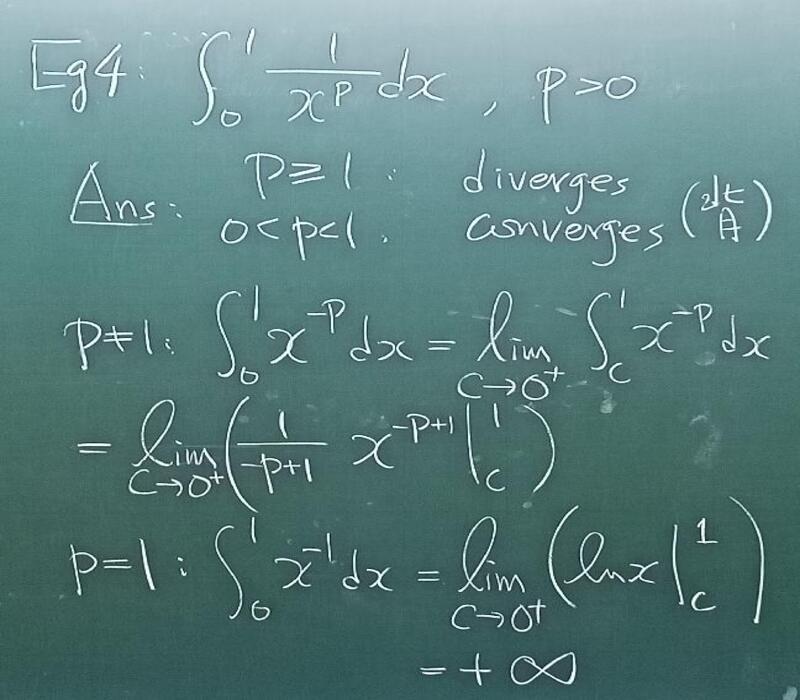 Eg4: ∫₀¹ 1/xᵖ dx , p>0
Ans: p≥1: diverges
0<p<1. converges
p≠1: ∫₀¹ x⁻ᵖ dx = lim_{c→0⁺} ∫_c¹ x⁻ᵖ dx
= lim_{c→0⁺} ( 1/(-p+1) x^{-p+1} |_c^1 )
p=1: ∫₀¹ x⁻¹ dx = lim_{c→0⁺} ( ln x |_c^1 )
= +∞